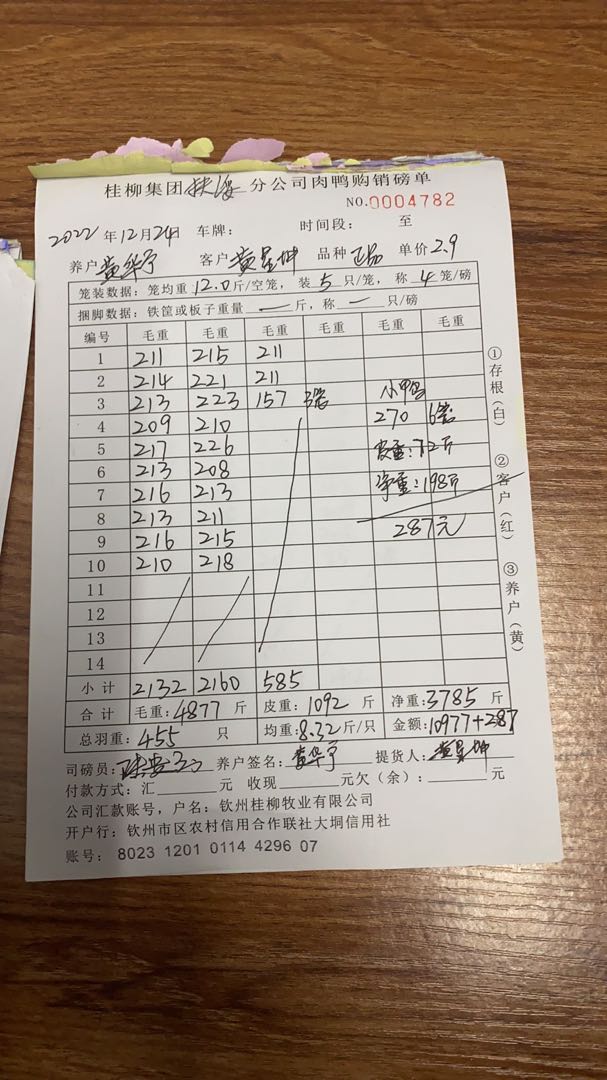 桂柳集团扶海分公司肉鸭购销磅单
NO.0004782
2022年12月24日 车牌： 时间段： 至
养户黄华宁 客户黄星坤 品种正品 单价2.9
笼装数据：笼均重12.0斤/空笼，装5只/笼，称4笼/磅
捆脚数据：铁筐或板子重量一斤，称一只/磅
编号 毛重 毛重 毛重 毛重 毛重 毛重
1 211 215 211
2 214 221 211
3 213 223 157 3笼 小鸭
4 209 210 270 6笼
5 217 226 皮重：72斤
6 213 208
7 216 213 净重：198斤
8 213 211
9 216 215 287元
10 210 218
11
12
13
14
小计 2132 2160 585
合计 毛重：4877斤 皮重：1092斤 净重：3785斤
总羽重：455只 均重：8.32斤/只 金额：10977+287
司磅员： 养户签名：黄华宁 提货人：黄星坤
付款方式：汇 元 收现 元欠（余）： 元
公司汇款账号，户名：钦州桂柳牧业有限公司
开户行：钦州市区农村信用合作联社大垌信用社
账号： 8023 1201 0114 4296 07
①存根（白）
②客户（红）
③养户（黄）